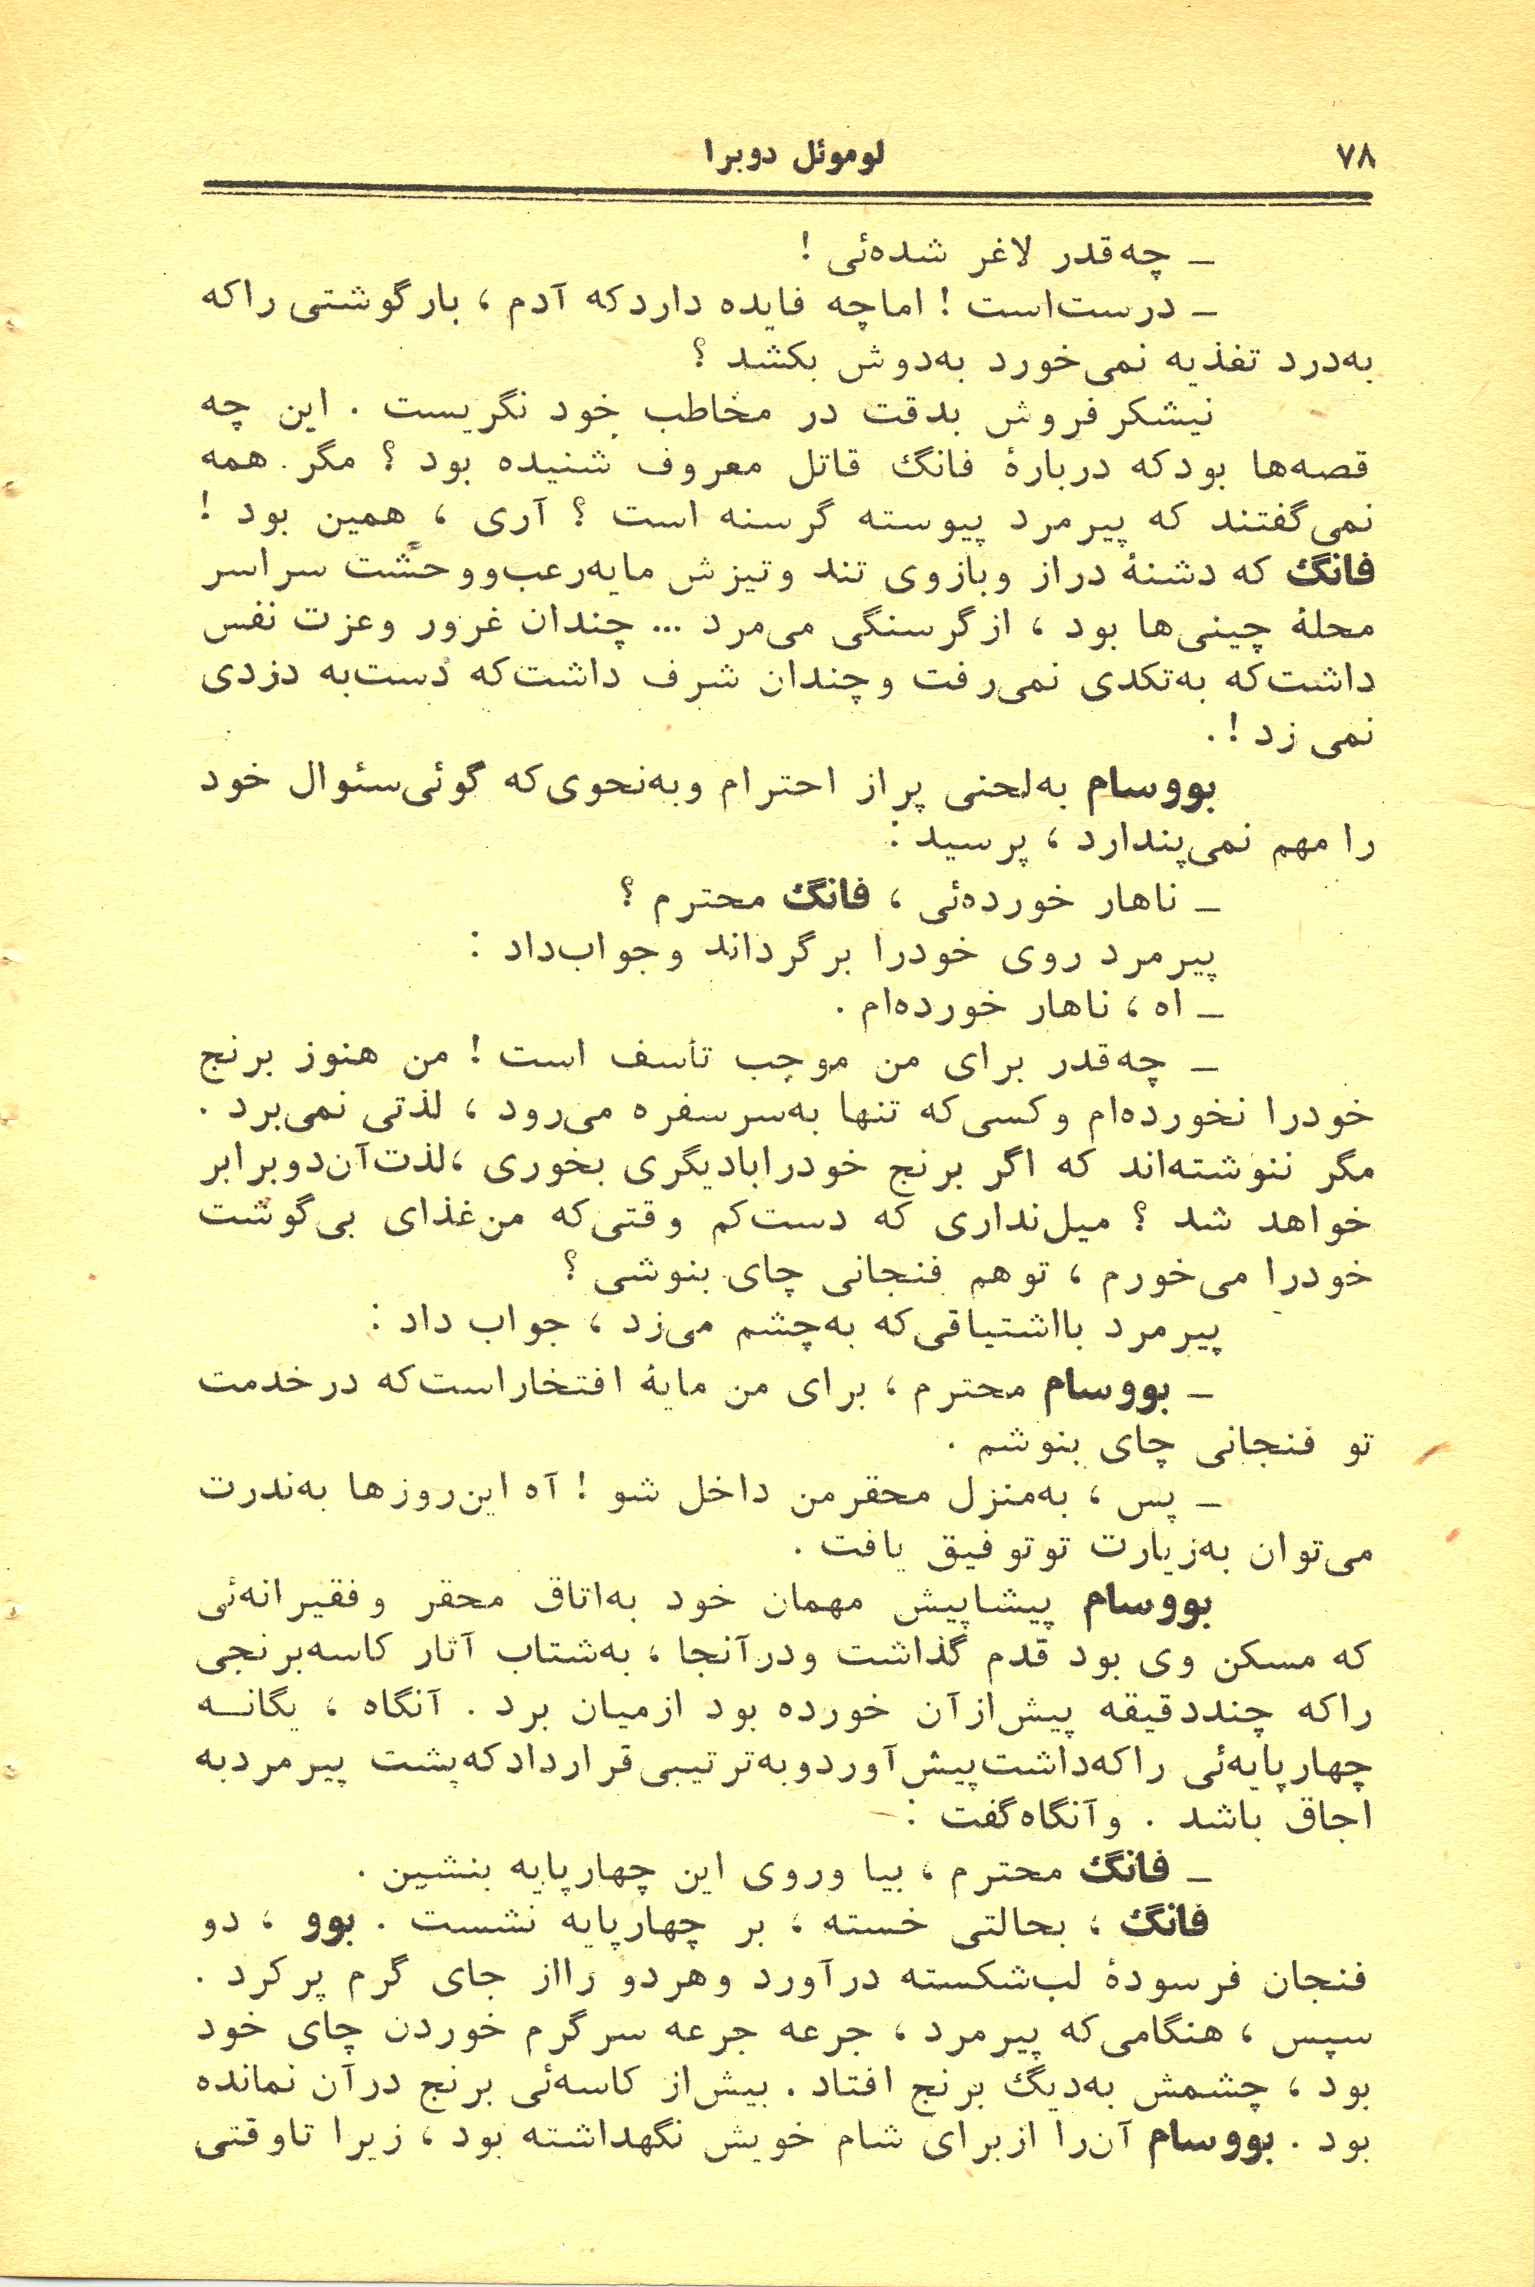 ۷۸
لوموئل دوبرا
ـ چه‌قدر لاغر شده‌ئی !
ـ درست‌است ! اماچه فایده داردکه آدم ، بارگوشتی راکه
به‌درد تغذیه نمی‌خورد به‌دوش بکشد ؟
نیشکرفروش بدقت در مخاطب خود نگریست . این چه
قصه‌ها بودکه دربارهٔ فانگ قاتل معروف شنیده بود ؟ مگر همه
نمی‌گفتند که پیرمرد پیوسته گرسنه است ؟ آری ، همین بود !
فانگ که دشنهٔ دراز وبازوی تند وتیزش مایه‌رعب‌ووحشت سراسر
محلهٔ چینی‌ها بود ، ازگرسنگی می‌مرد ... چندان غرور وعزت نفس
داشت‌که به‌تکدی نمی‌رفت وچندان شرف داشت‌که دست‌به دزدی
نمی زد ! .
بووسام به‌لحنی پراز احترام وبه‌نحوی‌که گوئی‌سئوال خود
را مهم نمی‌پندارد ، پرسید :
ـ ناهار خورده‌ئی ، فانگ محترم ؟
پیرمرد روی خودرا برگرداند وجواب‌داد :
ـ اه ، ناهار خورده‌ام .
ـ چه‌قدر برای من موجب تأسف است ! من هنوز برنج
خودرا نخورده‌ام وکسی‌که تنها به‌سرسفره می‌رود ، لذتی نمی‌برد .
مگر ننوشته‌اند که اگر برنج خودرابادیگری بخوری ،لذت‌آن‌دوبرابر
خواهد شد ؟ میل‌نداری که دست‌کم وقتی‌که من‌غذای بی‌گوشت
خودرا می‌خورم ، توهم فنجانی چای بنوشی ؟
پیرمرد بااشتیاقی‌که به‌چشم می‌زد ، جواب داد :
ـ بووسام محترم ، برای من مایهٔ افتخاراست‌که درخدمت
تو فنجانی چای بنوشم .
ـ پس ، به‌منزل محقرمن داخل شو ! آه این‌روزها به‌ندرت
می‌توان به‌زیارت توتوفیق یافت .
بووسام پیشاپیش مهمان خود به‌اتاق محقر وفقیرانه‌ئی
که مسکن وی بود قدم گذاشت ودرآنجا ، به‌شتاب آثار کاسه‌برنجی
راکه چنددقیقه پیش‌ازآن خورده بود ازمیان برد . آنگاه ، یگانــه
چهارپایه‌ئی راکه‌داشت‌پیش‌آوردوبه‌ترتیبی‌قراردادکه‌پشت پیرمردبه
اجاق باشد . وآنگاه‌گفت :
ـ فانگ محترم ، بیا وروی این چهارپایه بنشین .
فانگ ، بحالتی خسته ، بر چهارپایه نشست . بوو ، دو
فنجان فرسودهٔ لب‌شکسته درآورد وهردو رااز جای گرم پرکرد .
سپس ، هنگامی‌که پیرمرد ، جرعه جرعه سرگرم خوردن چای خود
بود ، چشمش به‌دیگ برنج افتاد . بیش‌از کاسه‌ئی برنج درآن نمانده
بود . بووسام آن‌را ازبرای شام خویش نگهداشته بود ، زیرا تاوقتی